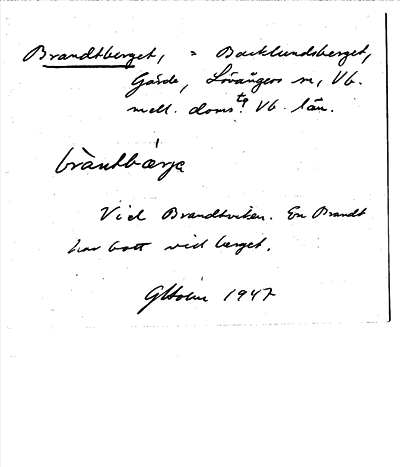 Brandtberget, = Backlundsberget,
Gärde, Lövångers sn, Vb.
mell. doms tg Vb. län.
bràntbærjɐ
Vid Brandtviken. En Brandt
har bott vid berget.
GHolm 1947